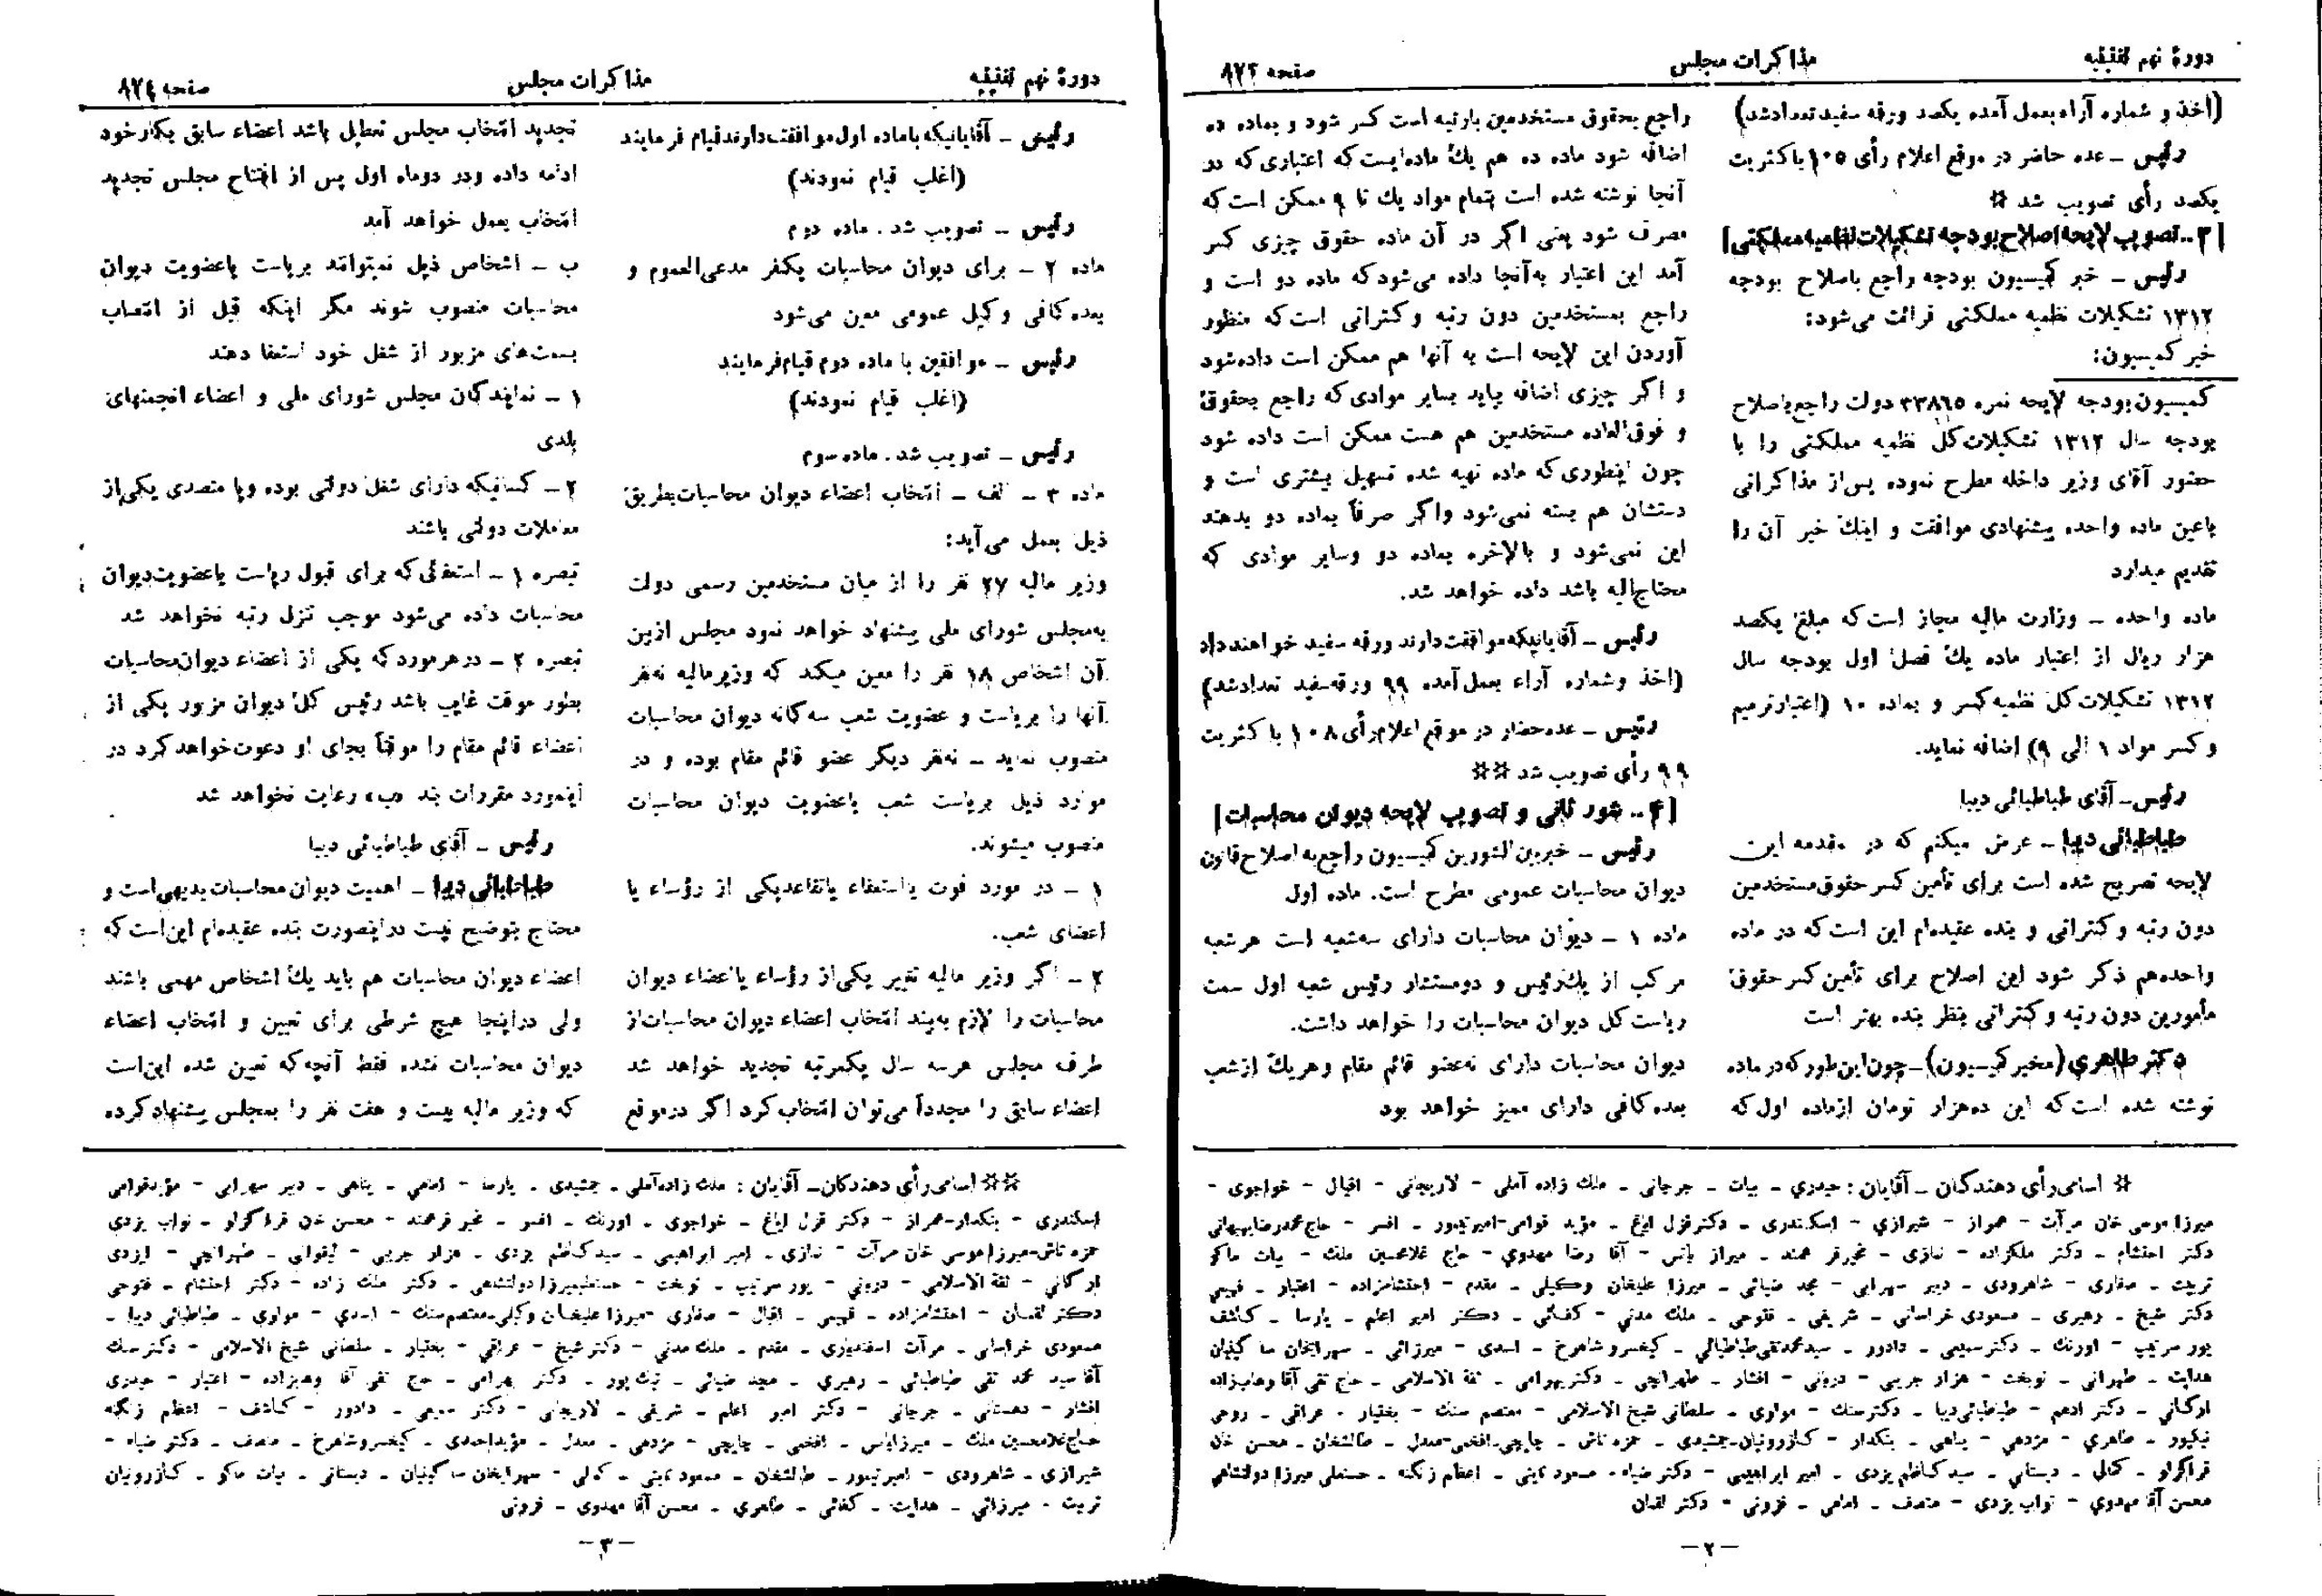 دورهٔ نهم تقنینیه
مذاکرات مجلس
صفحه ۸۷۳
(اخذ و شماره آراء بعمل آمده یکصد ورقه سفید تعداد شد)
رئیس ـ عده حاضر در موقع اعلام رأی ۱۰۵ باکثریت
یکصد رأی تصویب شد *
[۳ـ تصویب لایحه اصلاح بودجه تشکیلات نظمیه مملکتی]
رئیس ـ خبر کمیسیون بودجه راجع باصلاح بودجه
۱۳۱۲ تشکیلات نظمیه مملکتی قرائت می‌شود:
خبر کمیسیون:
کمیسیون بودجه لایحه نمره ۳۳۸۶۵ دولت راجع باصلاح
بودجه سال ۱۳۱۲ تشکیلات کل نظمیه مملکتی را با
حضور آقای وزیر داخله مطرح نموده پس از مذاکراتی
باعین ماده واحده پیشنهادی موافقت و اینک خبر آن را
تقدیم میدارد
ماده واحده ـ وزارت مالیه مجاز است که مبلغ یکصد
هزار ریال از اعتبار ماده یک فصل اول بودجه سال
۱۳۱۲ تشکیلات کل نظمیه کسر و بماده ۱۰ (اعتبار ترمیم
و کسر مواد ۱ الی ۹) اضافه نماید.
رئیس ـ آقای طباطبائی دیبا
طباطبائی دیبا ـ عرض میکنم که در مقدمه این
لایحه تصریح شده است برای تأمین کسر حقوق مستخدمین
دون رتبه و کنتراتی و بنده عقیده‌ام این است که در ماده
واحده هم ذکر شود این اصلاح برای تأمین کسر حقوق
مأمورین دون رتبه و کنتراتی بنظر بنده بهتر است
دکتر طاهری (مخبر کمیسیون) ـ چون این طور که در ماده
نوشته شده است که این ده هزار تومان از ماده اول که
راجع بحقوق مستخدمین بارتبه است کسر شود و بماده ده
اضافه شود ماده ده هم یک ماده‌ایست که اعتباری که در
آنجا نوشته شده است بتمام مواد یک تا ۹ ممکن است که
مصرف شود یعنی اگر در آن ماده حقوق چیزی کسر
آمد این اعتبار به آنجا داده می‌شود که ماده دو است و
راجع بمستخدمین دون رتبه و کنتراتی است که منظور
آوردن این لایحه است به آنها هم ممکن است داده شود
و اگر چیزی اضافه بیاید بسایر موادی که راجع بحقوق
و فوق‌العاده مستخدمین هم هست ممکن است داده شود
چون اینطوری که ماده تهیه شده تسهیل بیشتری است و
دستشان هم بسته نمی‌شود واگر صرفاً بماده دو بدهند
این نمی‌شود و بالاخره بماده دو وسایر موادی که
محتاج‌الیه باشد داده خواهد شد.
رئیس ـ آقایانیکه موافقت دارند ورقه سفید خواهند داد
(اخذ وشماره آراء بعمل آمده ۹۹ ورقه سفید تعداد شد)
رئیس ـ عده حضار در موقع اعلام رأی ۱۰۸ با کثریت
۹۹ رأی تصویب شد **
[۴ـ شور ثانی و تصویب لایحه دیوان محاسبات]
رئیس ـ خبر بین الشورین کمیسیون راجع به اصلاح قانون
دیوان محاسبات عمومی مطرح است. ماده اول
ماده ۱ ـ دیوان محاسبات دارای سه شعبه است هر شعبه
مرکب از یک رئیس و دو مستشار رئیس شعبه اول سمت
ریاست کل دیوان محاسبات را خواهد داشت.
دیوان محاسبات دارای نه عضو قائم مقام و هر یک از شعب
بعده کافی دارای ممیز خواهد بود
* اسامی رأی دهندگان ـ آقایان : حیدری ـ بیات ـ جرجانی ـ ملک زاده آملی ـ لاریجانی ـ اقبال ـ خواجوی ـ
میرزا موسی خان مرآت ـ همراز ـ شیرازی ـ اسکندری ـ دکتر قزل ایاغ ـ مؤید قوامی ـ امیر تیمور ـ افسر ـ حاج محمد رضا بهبهانی
دکتر احتشام ـ دکتر ملکزاده ـ نمازی ـ مخبر فرهمند ـ میرزا یانس ـ آقا رضا مهدوی ـ حاج غلامحسین ملک ـ بیات ماکو
تربیت ـ صفاری ـ شاهرودی ـ دبیر سهرابی ـ مجد ضیائی ـ میرزا علیخان وکیلی ـ مقدم ـ احتشامزاده ـ اعتبار ـ فهیمی
دکتر شیخ ـ رهبری ـ مسعودی خراسانی ـ شریفی ـ فتوحی ـ ملک مدنی ـ کفائی ـ دکتر امیر اعلم ـ پارسا ـ کاشف
پور سرتیپ ـ اورنگ ـ دکتر سمیعی ـ دادور ـ سید محمد تقی طباطبائی ـ کیخسرو شاهرخ ـ اسدی ـ میرزائی ـ سهراب‌خان ساگینیان
هدایت ـ طهرانی ـ نوبخت ـ هزار جریبی ـ دروش ـ افشار ـ طهرانچی ـ دکتر بهرامی ـ ثقة الاسلامی ـ حاج تقی آقا وهاب‌زاده
اورگانی ـ دکتر ادهم ـ طباطبائی دیبا ـ دکتر سنگ ـ مولوی ـ سلطانی شیخ الاسلامی ـ معتصم سنگ ـ بختیار ـ عراقی ـ روحی
نیکپور ـ طاهری ـ مژدهی ـ پناهی ـ بنکدار ـ کازرونیان ـ جمشیدی ـ حمزه تاش ـ چایچی ـ افخمی ـ معدل ـ طالشخان ـ محسن خان
قراگزلو ـ کمالی ـ دبستانی ـ سید کاظم یزدی ـ امیر ابراهیمی ـ دکتر ضیاء ـ مسعود ثابتی ـ اعظم زنگنه ـ حسنعلی میرزا دولتشاهی
محسن آقا مهدوی ـ نواب یزدی ـ منصف ـ امامی ـ قزونی ـ دکتر لقمان
ـ۲ـ
دورهٔ نهم تقنینیه
مذاکرات مجلس
صفحه ۸۷۴
رئیس ـ آقایانیکه باماده اول موافقت دارند قیام فرمایند
(اغلب قیام نمودند)
رئیس ـ تصویب شد. ماده دوم
ماده ۲ ـ برای دیوان محاسبات یکنفر مدعی‌العموم و
بعده کافی وکیل عمومی معین می‌شود
رئیس ـ موافقین با ماده دوم قیام فرمایند
(اغلب قیام نمودند)
رئیس ـ تصویب شد. ماده سوم
ماده ۳ ـ الف ـ انتخاب اعضاء دیوان محاسبات بطریق
ذیل بعمل می‌آید:
وزیر مالیه ۲۷ نفر را از میان مستخدمین رسمی دولت
به‌مجلس شورای ملی پیشنهاد خواهد نمود مجلس ازبین
آن اشخاص ۱۸ نفر را معین میکند که وزیر مالیه نه نفر
آنها را بریاست و عضویت شعب سه گانه دیوان محاسبات
منصوب نماید ـ نه نفر دیگر عضو قائم مقام بوده و در
موارد ذیل بریاست شعب یاعضویت دیوان محاسبات
منصوب میشوند.
۱ ـ در مورد فوت یااستعفاء یاتقاعد یکی از رؤساء یا
اعضای شعب.
۲ ـ اگر وزیر مالیه تغییر یکی از رؤساء یااعضاء دیوان
محاسبات را لازم به‌بیند انتخاب اعضاء دیوان محاسبات از
طرف مجلس هر سه سال یکمرتبه تجدید خواهد شد
اعضاء سابق را مجدداً می‌توان انتخاب کرد اگر در موقع
تجدید انتخاب مجلس تعطیل باشد اعضاء سابق بکار خود
ادامه داده ودر دوماه اول پس از افتتاح مجلس تجدید
انتخاب بعمل خواهد آمد
ب ـ اشخاص ذیل نمیتوانند بریاست یاعضویت دیوان
محاسبات منصوب شوند مگر اینکه قبل از انتصاب
بسمت‌های مزبور از شغل خود استعفا دهند
۱ ـ نمایندگان مجلس شورای ملی و اعضاء انجمنهای
بلدی
۲ ـ کسانیکه دارای شغل دولتی بوده ویا متصدی یکی از
معاملات دولتی باشند
تبصره ۱ ـ استعفائی که برای قبول ریاست یاعضویت دیوان
محاسبات داده می‌شود موجب تنزل رتبه نخواهد شد
تبصره ۲ ـ در هر مورد که یکی از اعضاء دیوان محاسبات
بطور موقت غایب باشد رئیس کل دیوان مزبور یکی از
اعضاء قائم مقام را موقتاً بجای او دعوت خواهد کرد در
اینمورد مقررات بند «ب» رعایت نخواهد شد
رئیس ـ آقای طباطبائی دیبا
طباطبائی دیبا ـ اهمیت دیوان محاسبات بدیهی است و
محتاج بتوضیح نیست در اینصورت بنده عقیده‌ام این است که
اعضاء دیوان محاسبات هم باید یک اشخاص مهمی باشند
ولی دراینجا هیچ شرطی برای تعیین و انتخاب اعضاء
دیوان محاسبات نشده فقط آنچه که تعیین شده این است
که وزیر مالیه بیست و هفت نفر را بمجلس پیشنهاد کرده
** اسامی رأی دهندگان ـ آقایان : ملک زاده آملی ـ جمشیدی ـ پارسا ـ امامی ـ پناهی ـ دبیر سهرابی ـ مؤید قوامی
اسکندری ـ بنکدار ـ همراز ـ دکتر قزل ایاغ ـ خواجوی ـ اورنگ ـ افسر ـ مخبر فرهمند ـ محسن خان قراگزلو ـ نواب یزدی
حمزه تاش ـ میرزا موسی خان مرآت ـ نمازی ـ امیر ابراهیمی ـ سید کاظم یزدی ـ هزار جریبی ـ لیقوانی ـ طهرانچی ـ ایزدی
اورگانی ـ ثقة الاسلامی ـ دروش ـ پور سرتیپ ـ نوبخت ـ حسنعلیمیرزا دولتشاهی ـ دکتر ملک زاده ـ دکتر احتشام ـ فتوحی
دکتر لقمان ـ احتشامزاده ـ فهیمی ـ اقبال ـ صفاری ـ میرزا علیخان وکیلی ـ معتصم سنگ ـ اسدی ـ مولوی ـ طباطبائی دیبا ـ
مسعودی خراسانی ـ مرآت اسفندیاری ـ مقدم ـ ملک مدنی ـ دکتر شیخ ـ عراقی ـ بختیار ـ سلطانی شیخ الاسلامی ـ دکتر سنگ
آقا سید محمد تقی طباطبائی ـ رهبری ـ مجد ضیائی ـ نیک پور ـ دکتر بهرامی ـ حاج تقی آقا وهابزاده ـ اعتبار ـ حیدری
افشار ـ دهستانی ـ جرجانی ـ دکتر امیر اعلم ـ شریفی ـ لاریجانی ـ دکتر سمیعی ـ دادور ـ کاشف ـ اعظم زنگنه
حاج غلامحسین ملک ـ میرزایانس ـ افخمی ـ چایچی ـ مژدهی ـ معدل ـ مؤید احمدی ـ کیخسرو شاهرخ ـ منصف ـ دکتر ضیاء ـ
شیرازی ـ شاهرودی ـ امیر تیمور ـ طالشخان ـ مسعود ثابتی ـ کمالی ـ سهراب‌خان ساگینیان ـ دبستانی ـ بیات ماکو ـ کازرونیان
تربیت ـ میرزائی ـ هدایت ـ کفائی ـ طاهری ـ محسن آقا مهدوی ـ قزونی
ـ۳ـ